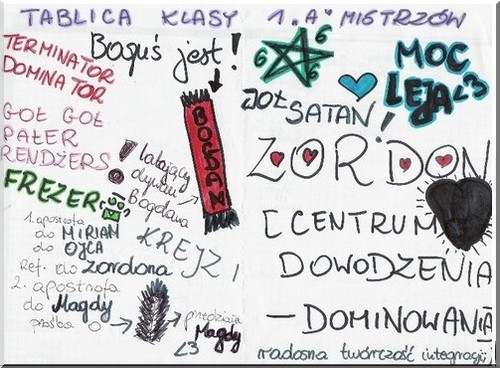 TABLICA KLASY 1. "A" MISTRZÓW
TERMINATOR
DOMINATOR
Boguś jest!
GOŁ GOŁ
PAŁER
RENDŻERS
FREZER
latający
dywan
Bogdana
BOGDAN
1. apostrofa
do MIRIAM
do OJCA
Ref. do zordona
2. apostrofa
do Magdy
prośba o
KREJZI
Magdy
<3
6 6 6
MOC
LEJA <3
JOŁ SATAN!
ZORDON
[CENTRUM
DOWODZENIA
– DOMINOWANIA
radosna twórczość integracji